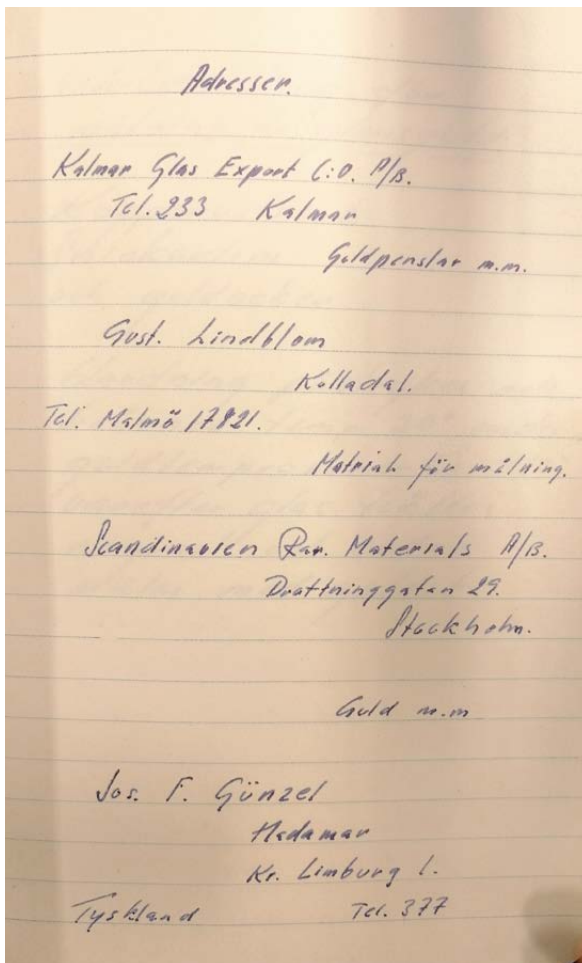 Adresser.
Kalmar Glas Export C:o. A/B.
Tel. 233 Kalmar
Guldpenslar m.m.
Gust. Lindblom
Kulladal.
Tel. Malmö 17821.
Matrial för målning.
Scandinavien Raw. Materials A/B.
Drottninggatan 29.
Stockholm.
Guld m.m
Jos. F. Günzel
Hadamar
Kr. Limburg l.
Tyskland Tel. 377